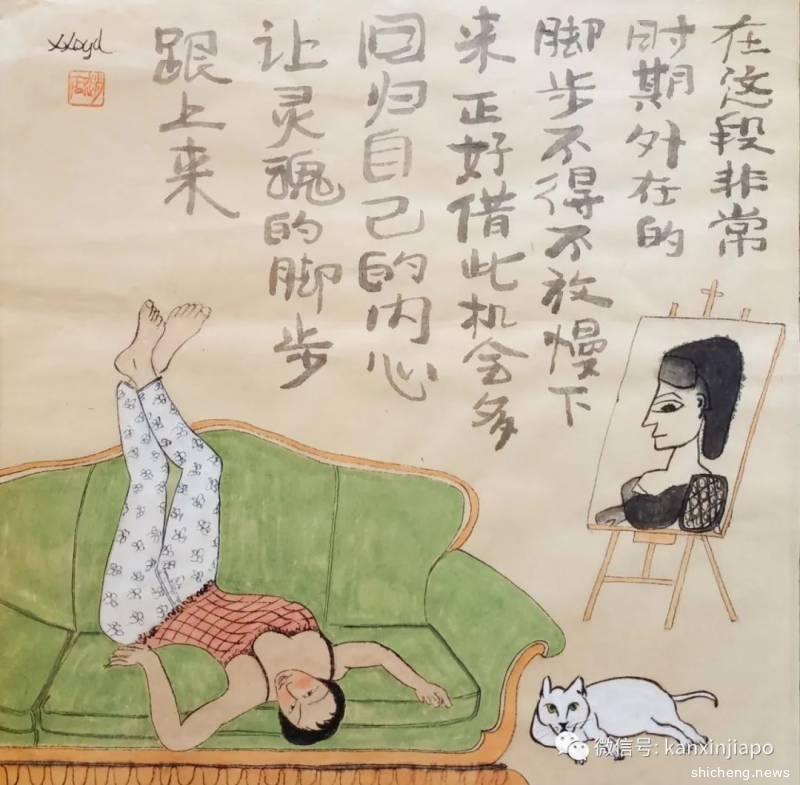 在这段非常
时期外在的
脚步不得不放慢下
来正好借此机会多
回归自己的内心
让灵魂的脚步
跟上来
微信号: kanxinjiapo
shicheng.news